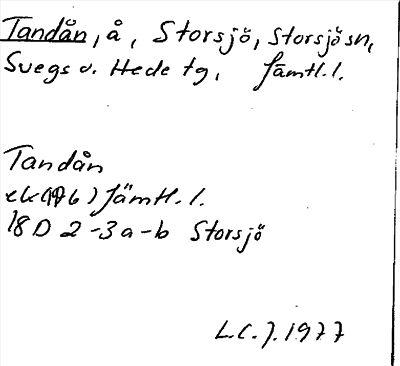 Tandån, å, Storsjö, Storsjö sn,
Svegs o. Hede tg, Jämtl. l.
Tandån
ek (1976) Jämtl. l.
18 D 2-3 a-b Storsjö
L.C.J. 1977